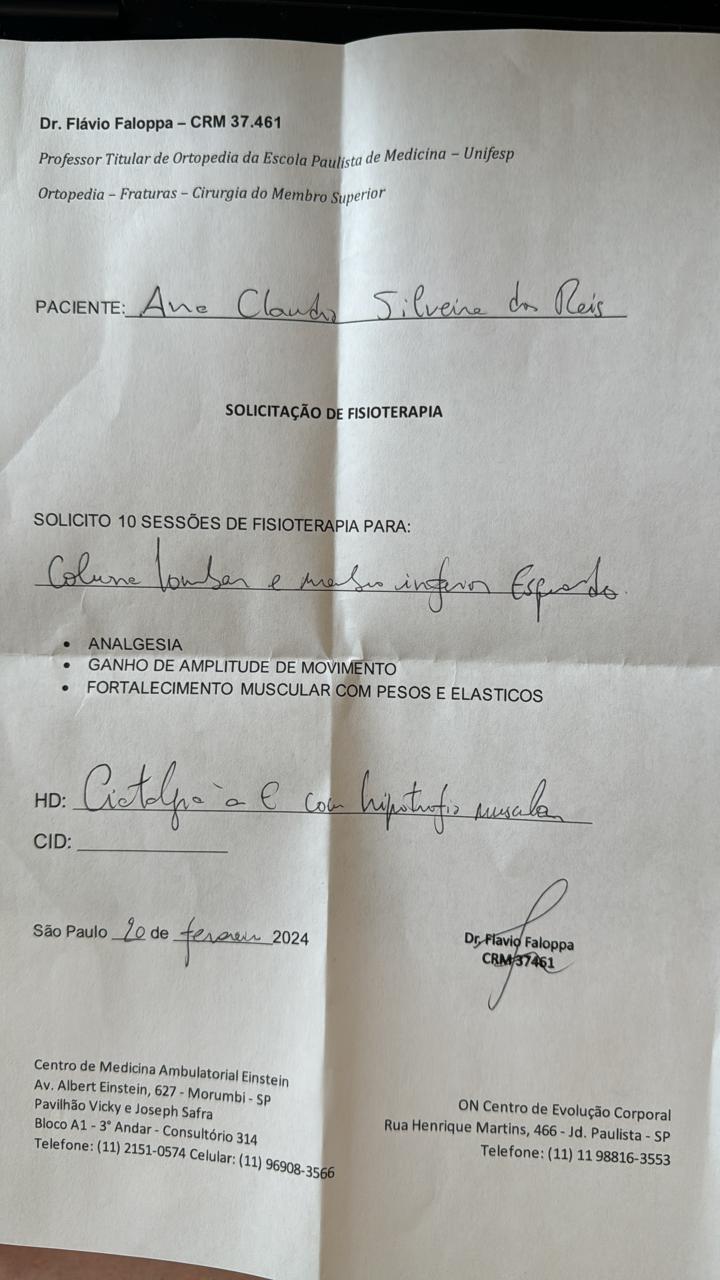 Dr. Flávio Faloppa – CRM 37.461
Professor Titular de Ortopedia da Escola Paulista de Medicina – Unifesp
Ortopedia – Fraturas – Cirurgia do Membro Superior
PACIENTE: Ana Claudia Silveira dos Reis
SOLICITAÇÃO DE FISIOTERAPIA
SOLICITO 10 SESSÕES DE FISIOTERAPIA PARA:
Coluna lombar e membro inferior Esquerdo.
• ANALGESIA
• GANHO DE AMPLITUDE DE MOVIMENTO
• FORTALECIMENTO MUSCULAR COM PESOS E ELASTICOS
HD: à E com hipotrofia muscular
CID:
São Paulo 20 de fevereiro 2024
Dr. Flavio Faloppa
CRM 37461
Centro de Medicina Ambulatorial Einstein
Av. Albert Einstein, 627 - Morumbi - SP
Pavilhão Vicky e Joseph Safra
Bloco A1 - 3° Andar - Consultório 314
Telefone: (11) 2151-0574 Celular: (11) 96908-3566
ON Centro de Evolução Corporal
Rua Henrique Martins, 466 - Jd. Paulista - SP
Telefone: (11) 11 98816-3553